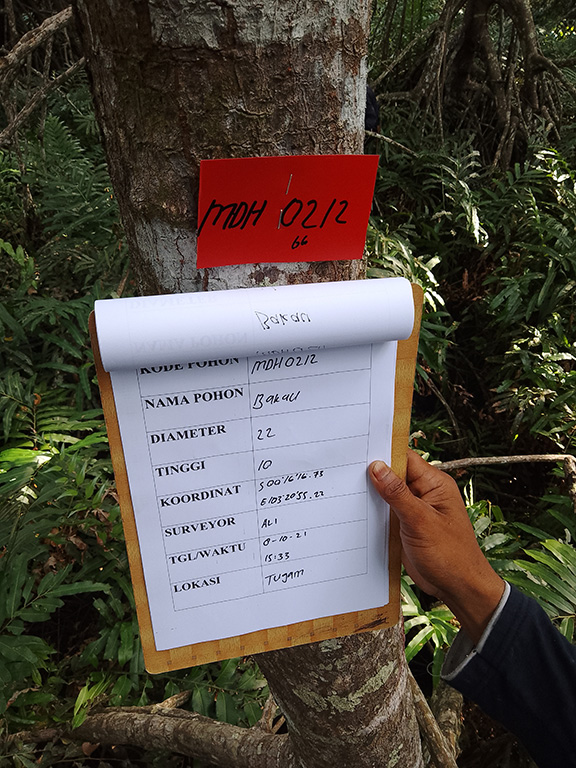 MDH 0212
66
Bakau
KODE POHON MDH 0212
NAMA POHON Bakau
DIAMETER 22
TINGGI 10
KOORDINAT S 00°16'16.73
E103°20'55.22
SURVEYOR ALI
TGL/WAKTU 8-10-21
15:33
LOKASI Tugam